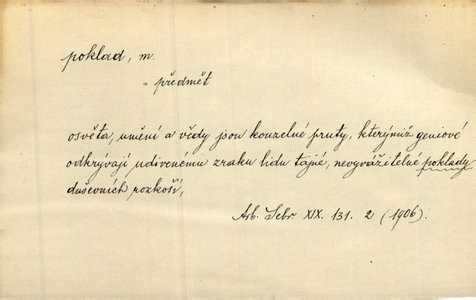 poklad, m.
= předmět
osvěta, umění a vědy jsou kouzelné pruty, kterýmiž geniové
odkrývají udivenému zraku lidu tajné, nevyvážitelné poklady
duševních rozkoší,
Arb. Sebr XIX. 131. 2 (1906).